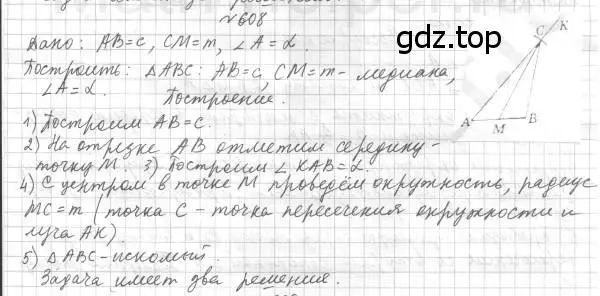 №608
Дано: AB=c, CM=m, ∠A=α.
Построить: △ABC: AB=c, CM=m - медиана,
∠A=α. Построение.
1) Построим AB=c.
2) На отрезке AB отметим середину -
точку M. 3) Построим ∠KAB=α.
4) С центром в точке M проведём окружность, радиус
MC=m (точка C - точка пересечения окружности и
луча AK).
5) △ABC - искомый.
Задача имеет два решения.
gdz.top
C K
A M B